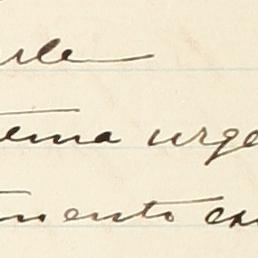 rle
tema urge
mento en